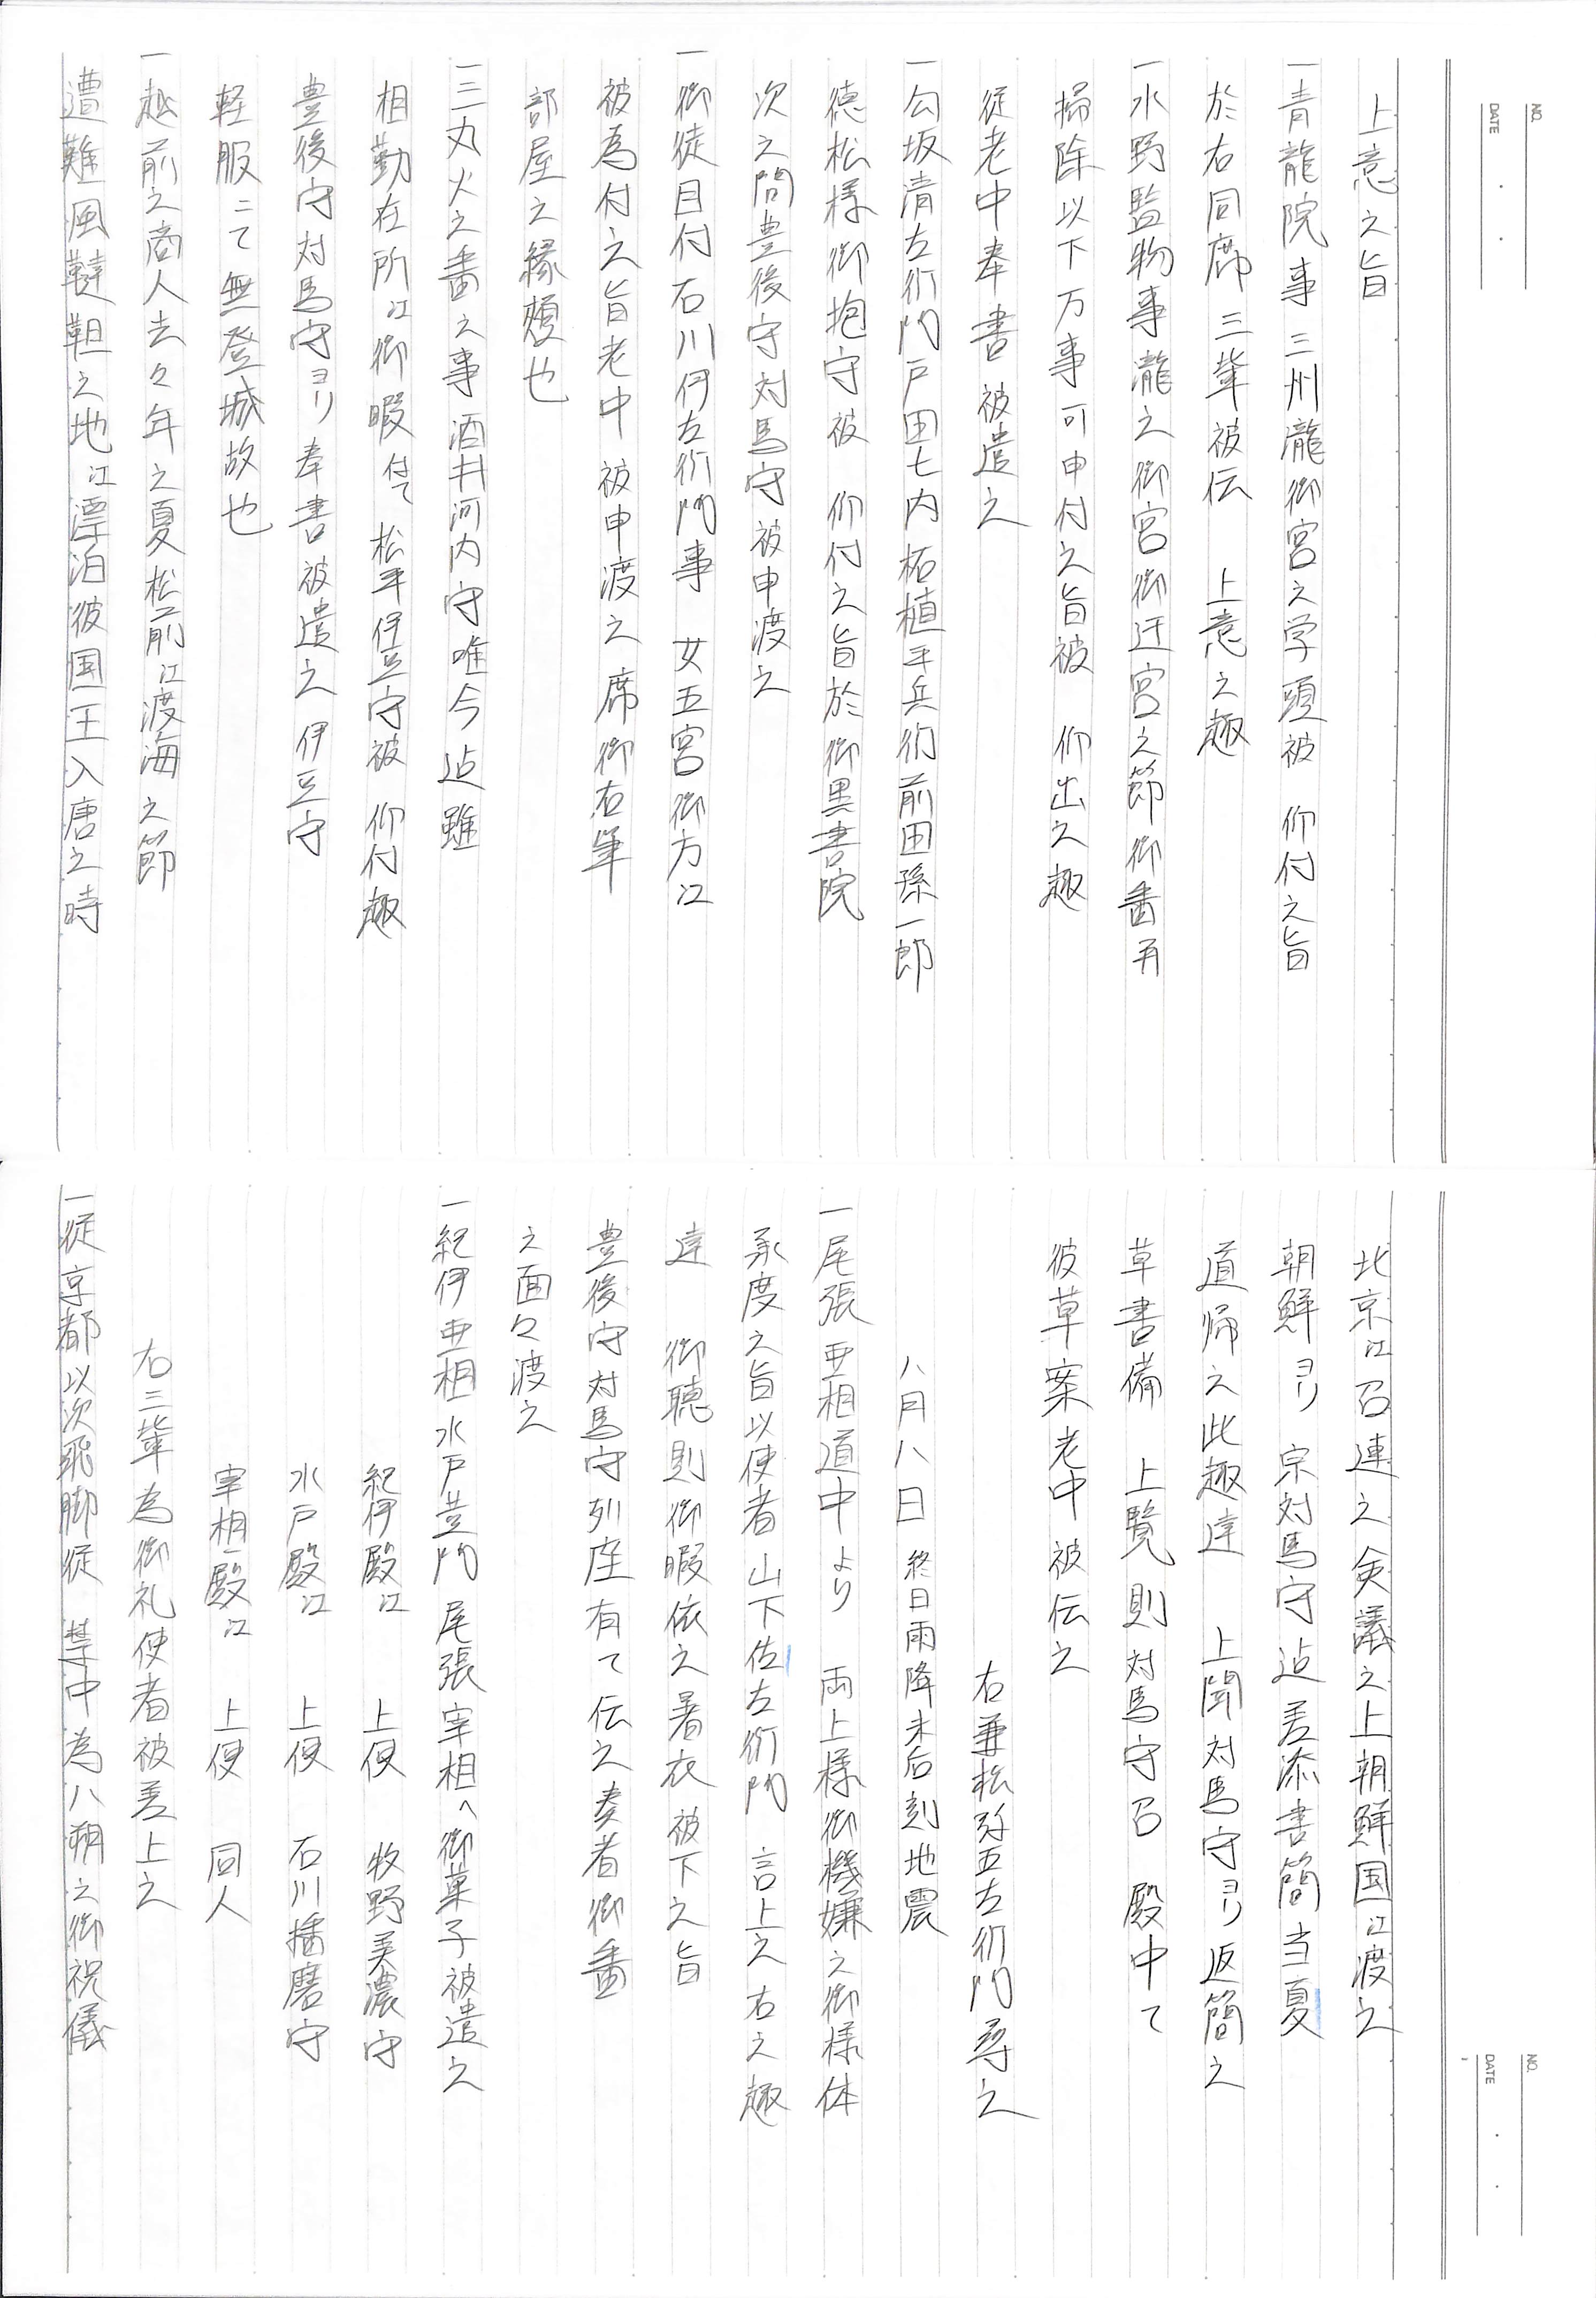 NO.
DATE
上意之旨
一青龍院事三州瀧御宮之学頭被　仰付之旨
於右同席三輩被伝　上意之趣
一水野監物事瀧之御宮御迁宮之節御番再
掃除以下万事可申付之旨被　仰出之趣
従老中奉書被遣之
一勾坂清左衛門戸田七内柘植平兵衛前田孫一郎
徳松様御抱守被　仰付之旨於御黒書院
次之間豊後守対馬守被申渡之
一御徒目付石川伊左衛門事　女五宮御方江
被為付之旨老中被申渡之席御右筆
部屋之縁頬也
一三丸火之番之事酒井河内守唯今迠雖
相勤在所江御暇付て松平伊豆守被　仰付趣
豊後守対馬守ヨリ奉書被遣之伊豆守
軽服ニて無登城故也
一越前之商人去々年之夏松前江渡海之節
遭難風韃靼之地江漂泊彼国王入唐之時
NO.
DATE
北京江召連之僉議之上朝鮮国江渡之
朝鮮ヨリ　宗対馬守迠差添書簡当夏
道帰之此趣達　上聞対馬守ヨリ返簡之
草書備　上覧則対馬守召　殿中て
彼草案老中被伝之
右兼松弥五左衛門尋之
八月八日　終日雨降未后刻地震
一尾張亜相道中より　両上様御機嫌之御様体
承度之旨以使者山下佐左衛門　言上之右之趣
達　御聴則御暇依之著衣被下之旨
豊後守対馬守列座有て伝之奏者御番
之面々渡之
一紀伊亜相水戸黄門尾張宰相へ御菓子被遣之
紀伊殿江　上使　牧野美濃守
水戸殿江　上使　石川播磨守
宰相殿江　上使　同人
右三輩為御礼使者被差上之
一従京都以次飛脚従　禁中為八朔之御祝儀